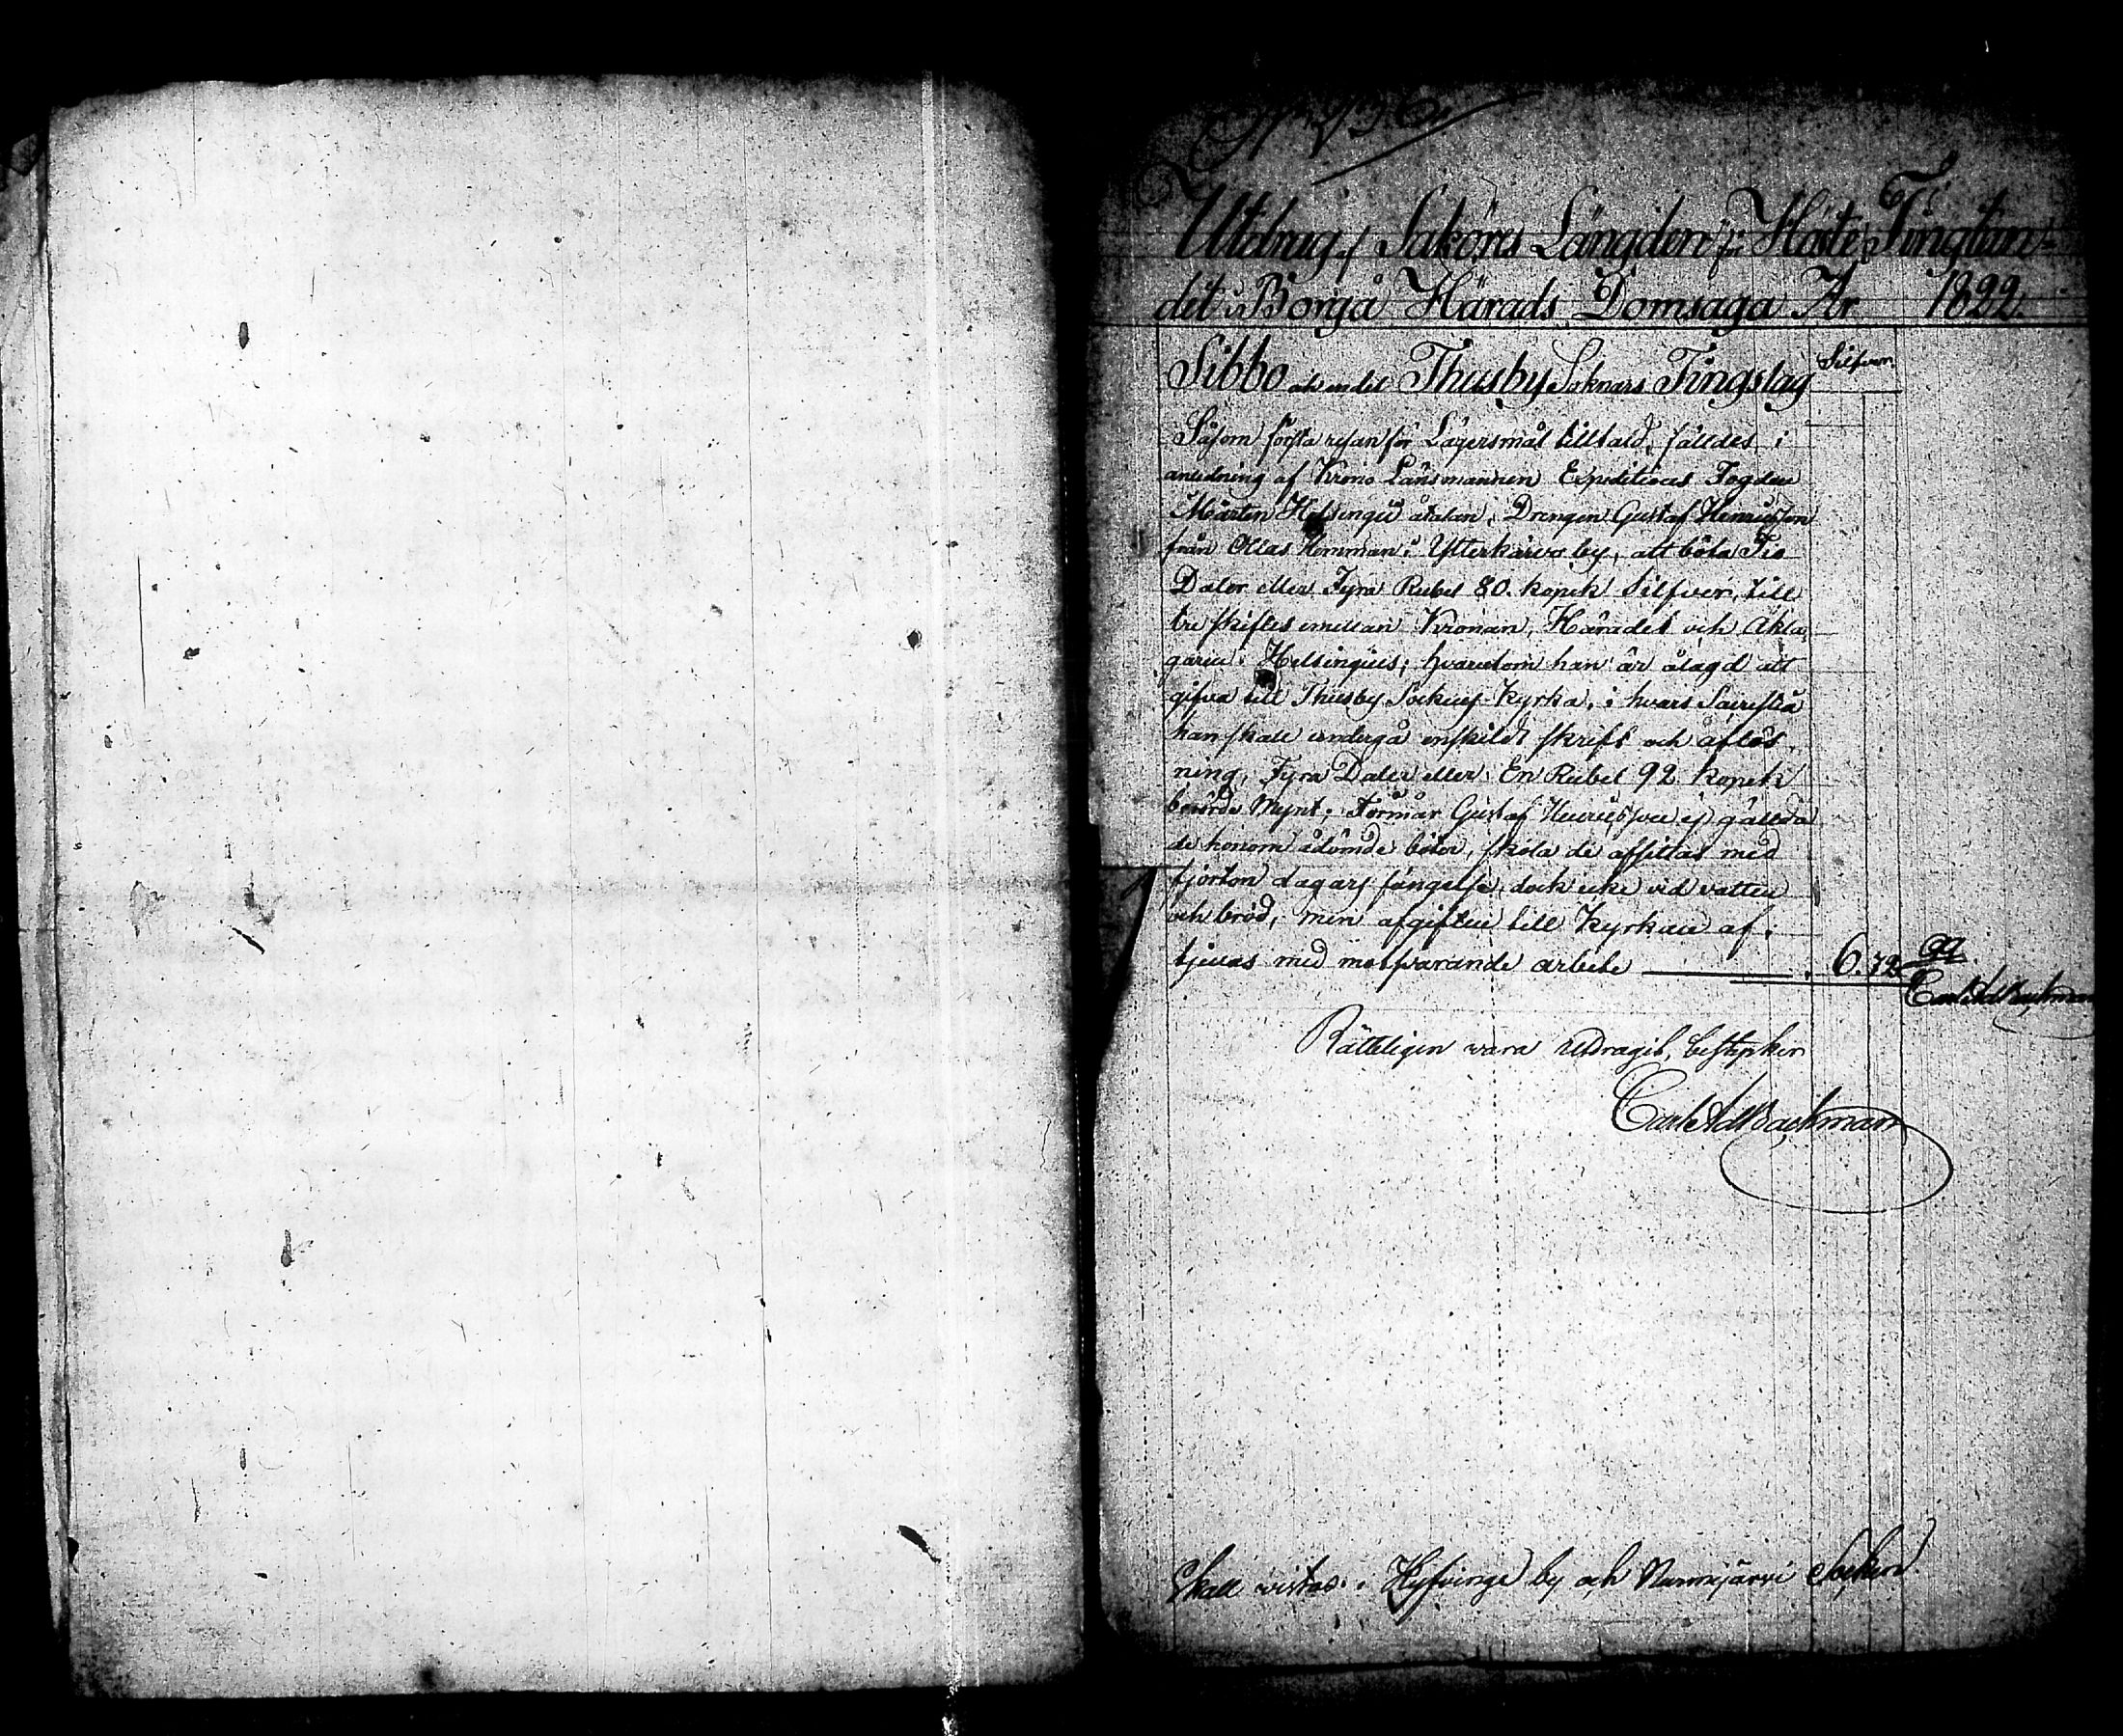 Utdrag af Saköres Längden för Höste Tingtän-
det i Borgå Härads Domsaga År 1822.
Sibbo och en del Thusby Soknars Tingslag
Silfver
Såsom första resan för Lägersmål tilltald, fälldes i
anledning af Krono Länsmannen Expeditions Fogden
Mårten Helsingii åtalan, Drengen Gustaf Henricsson
från Ollas Hemman i Ytterkärvo by, att böta Tio
Daler eller Fyra Rubel 80. kopek Silfver, till
tre skiftes emellan Kronan, Häradet och Åkla-
garen Helsingius; hvarutom han är ålagd att
gifva till Thusby Sockens Kyrka, i hvars Sacristia
han skall undergå enskildt skrift och aflös-
ning, Fyra Daler eller En Rubel 92 kopek
berörde Mynt; Förmår Gustaf Henricsson ej gällda
de honom ådömde böter, skola de afsittas med
fjorton dagars fängelse, dock icke vid vatten
och bröd, men afgiften till Kyrkan af-
tjenas med motsvarande arbete . 6. 72
Carl Ad Backman
Rätteligen vara utdragit, bestyrker
Carl Ad Backman
Skall vistas i Hyfvinge by och Nurmijärvi Socken